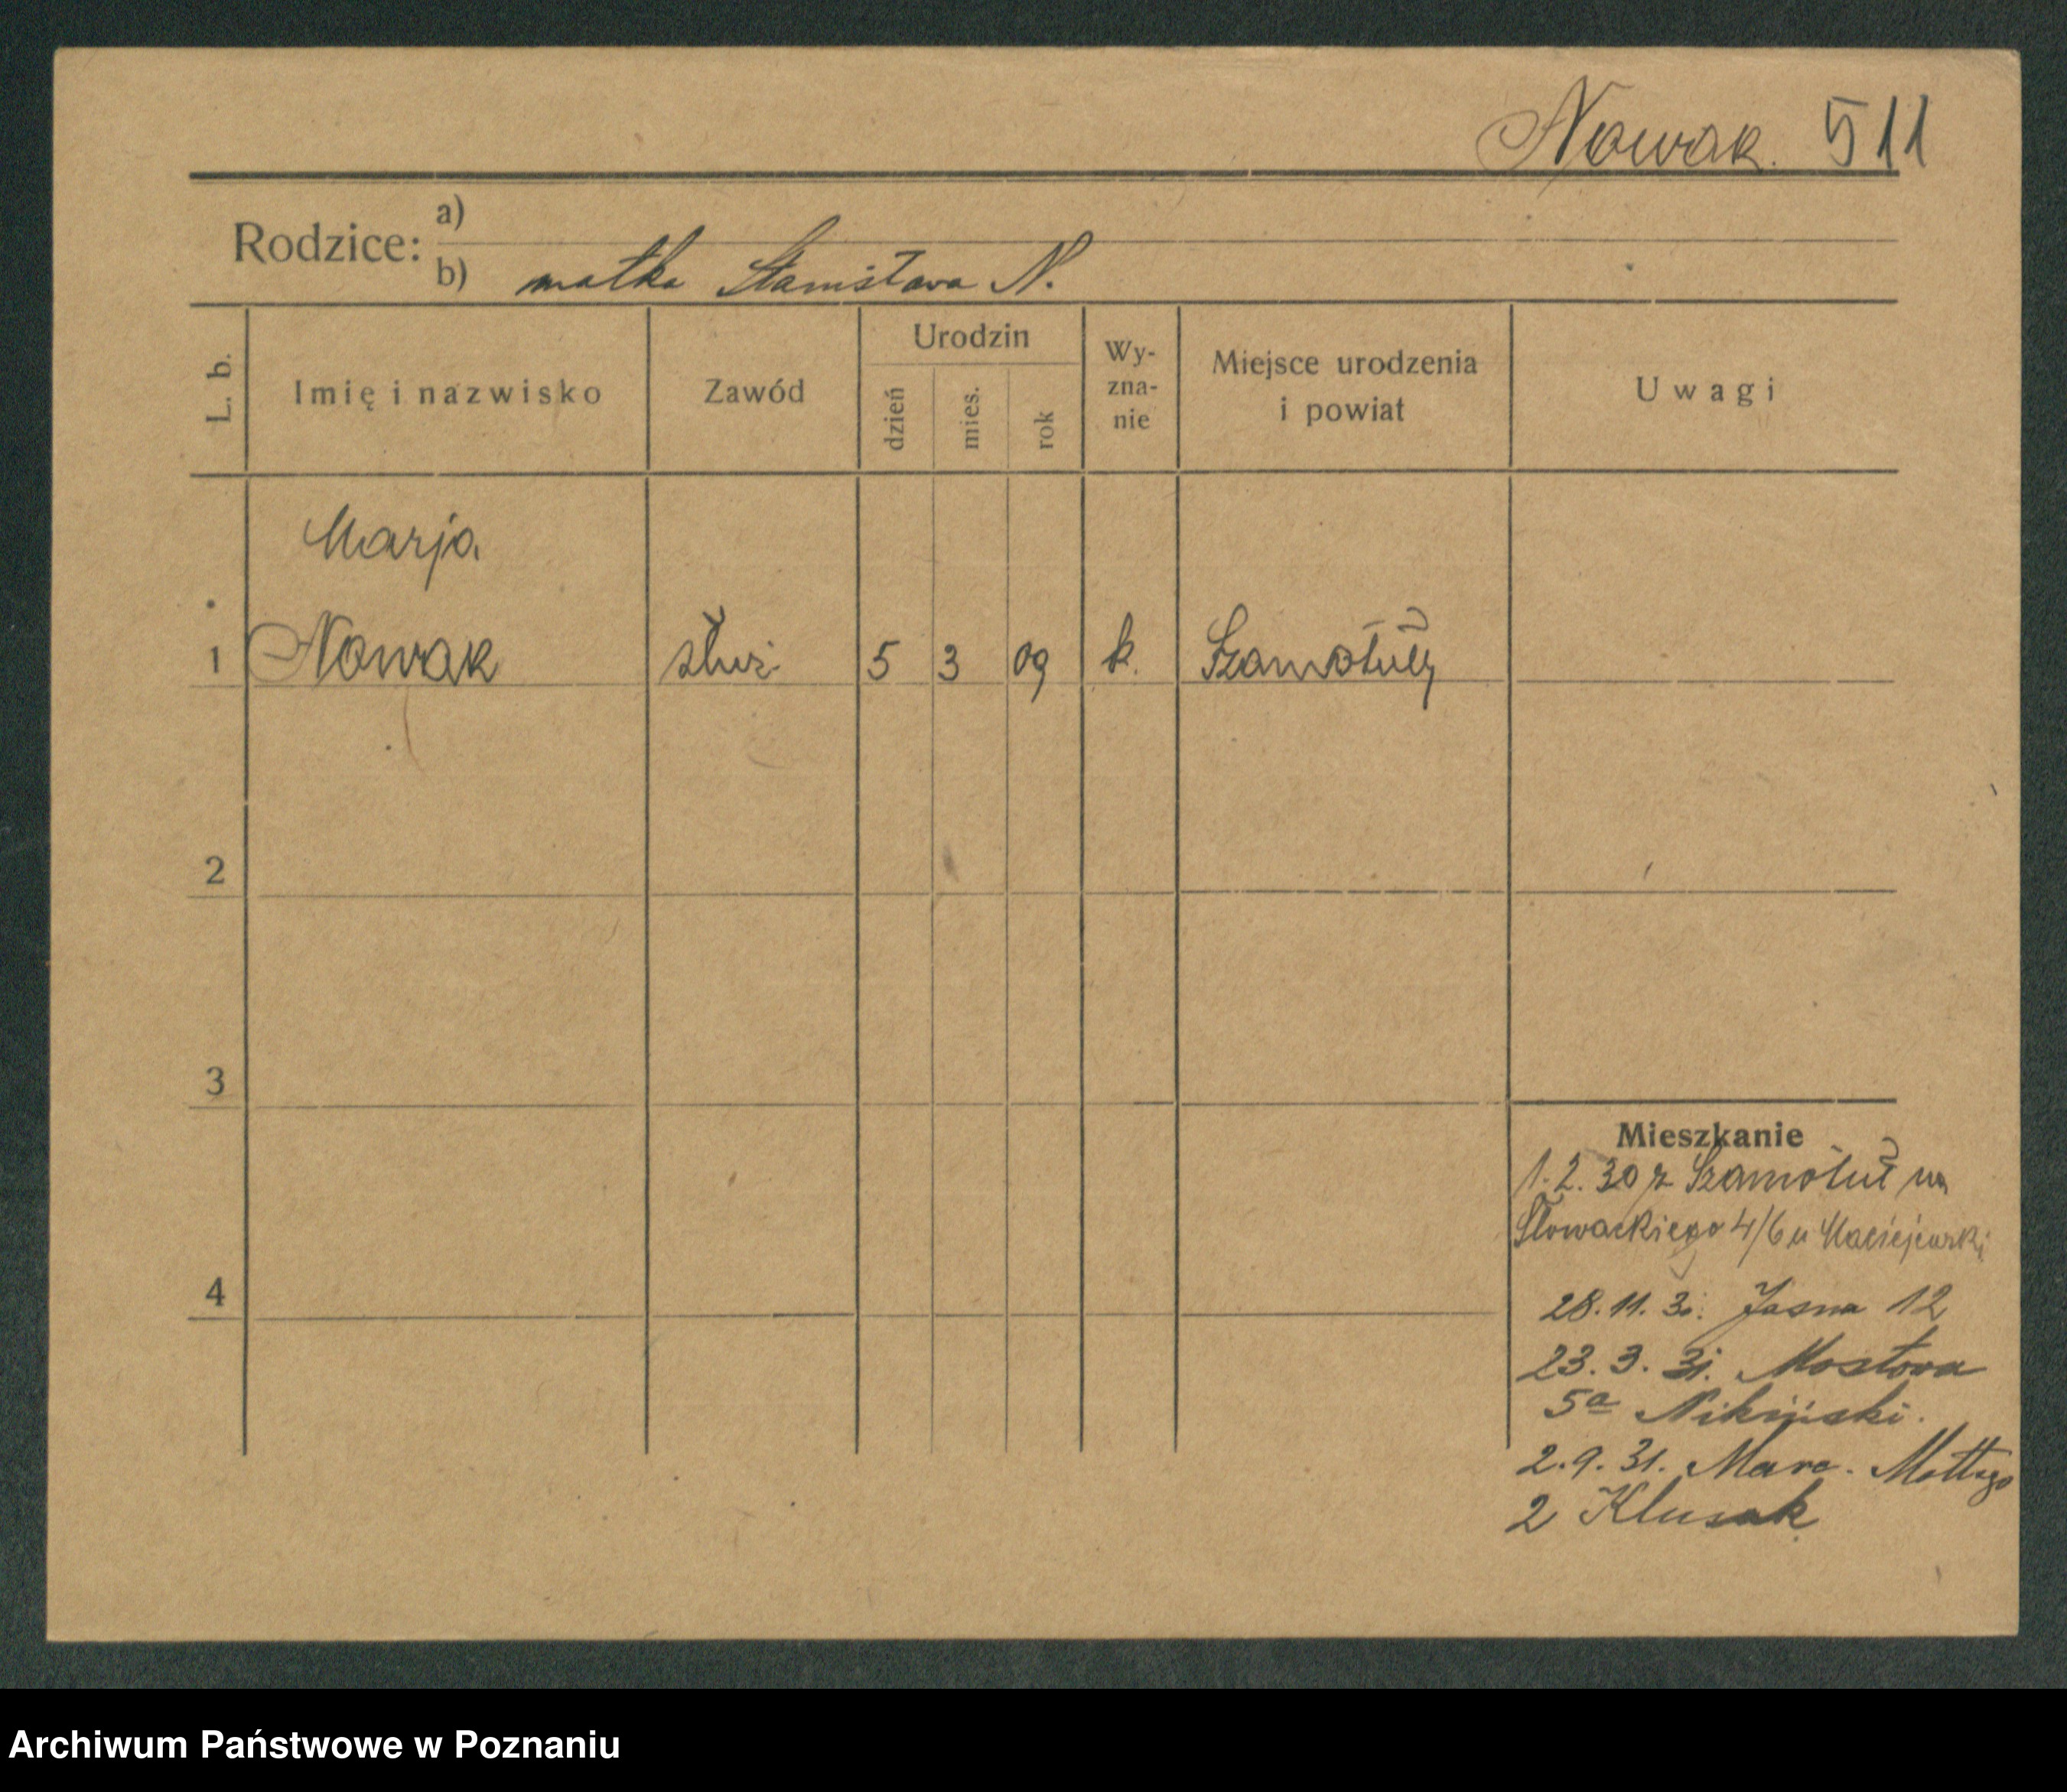 Nowak. 511
Rodzice: a)
b) matka Stanisława N.
L. b.
Imię i nazwisko
Zawód
Urodzin
dzień
mies.
rok
Wy-
zna-
nie
Miejsce urodzenia
i powiat
Uwagi
Marja
1 Nowak służ. 5 3 09 k. Szamotuły
2
3
4
Mieszkanie
1.2.30 z Szamotuł na
Słowackiego 4/6 u Maciejewski
28.11.30. Jasna 12
23.3.31. Mostowa
5a
2.9.31. Marc. Mottego
2 Klusak
Archiwum Państwowe w Poznaniu